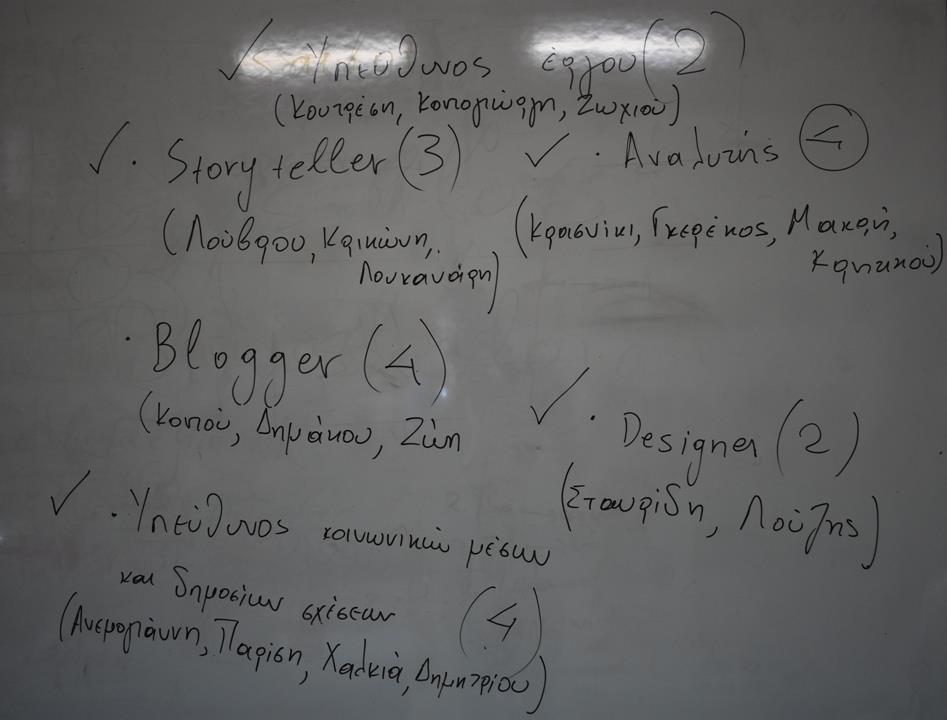 ✓ Υπεύθυνος έργου (2)
(Κουτρέση, Κοντογιώργη, Ζωχιού)
✓ · Story teller (3)
(Λούβρου, Κρικώνη,
Λουκανάρη)
✓ · Αναλυτής 4
(Κρασνίκι, Γκερέκος, Μακρή,
Κρητικού)
· Blogger (4)
(Κοντού, Δημάκου, Ζώη
✓ · Designer (2)
(Σταυρίδη, Λούζης)
✓ · Υπεύθυνος κοινωνικών μέσων
και δημοσίων σχέσεων (4)
(Ανεμογιάννη, Παρίση, Χαλκιά, Δημητρίου)